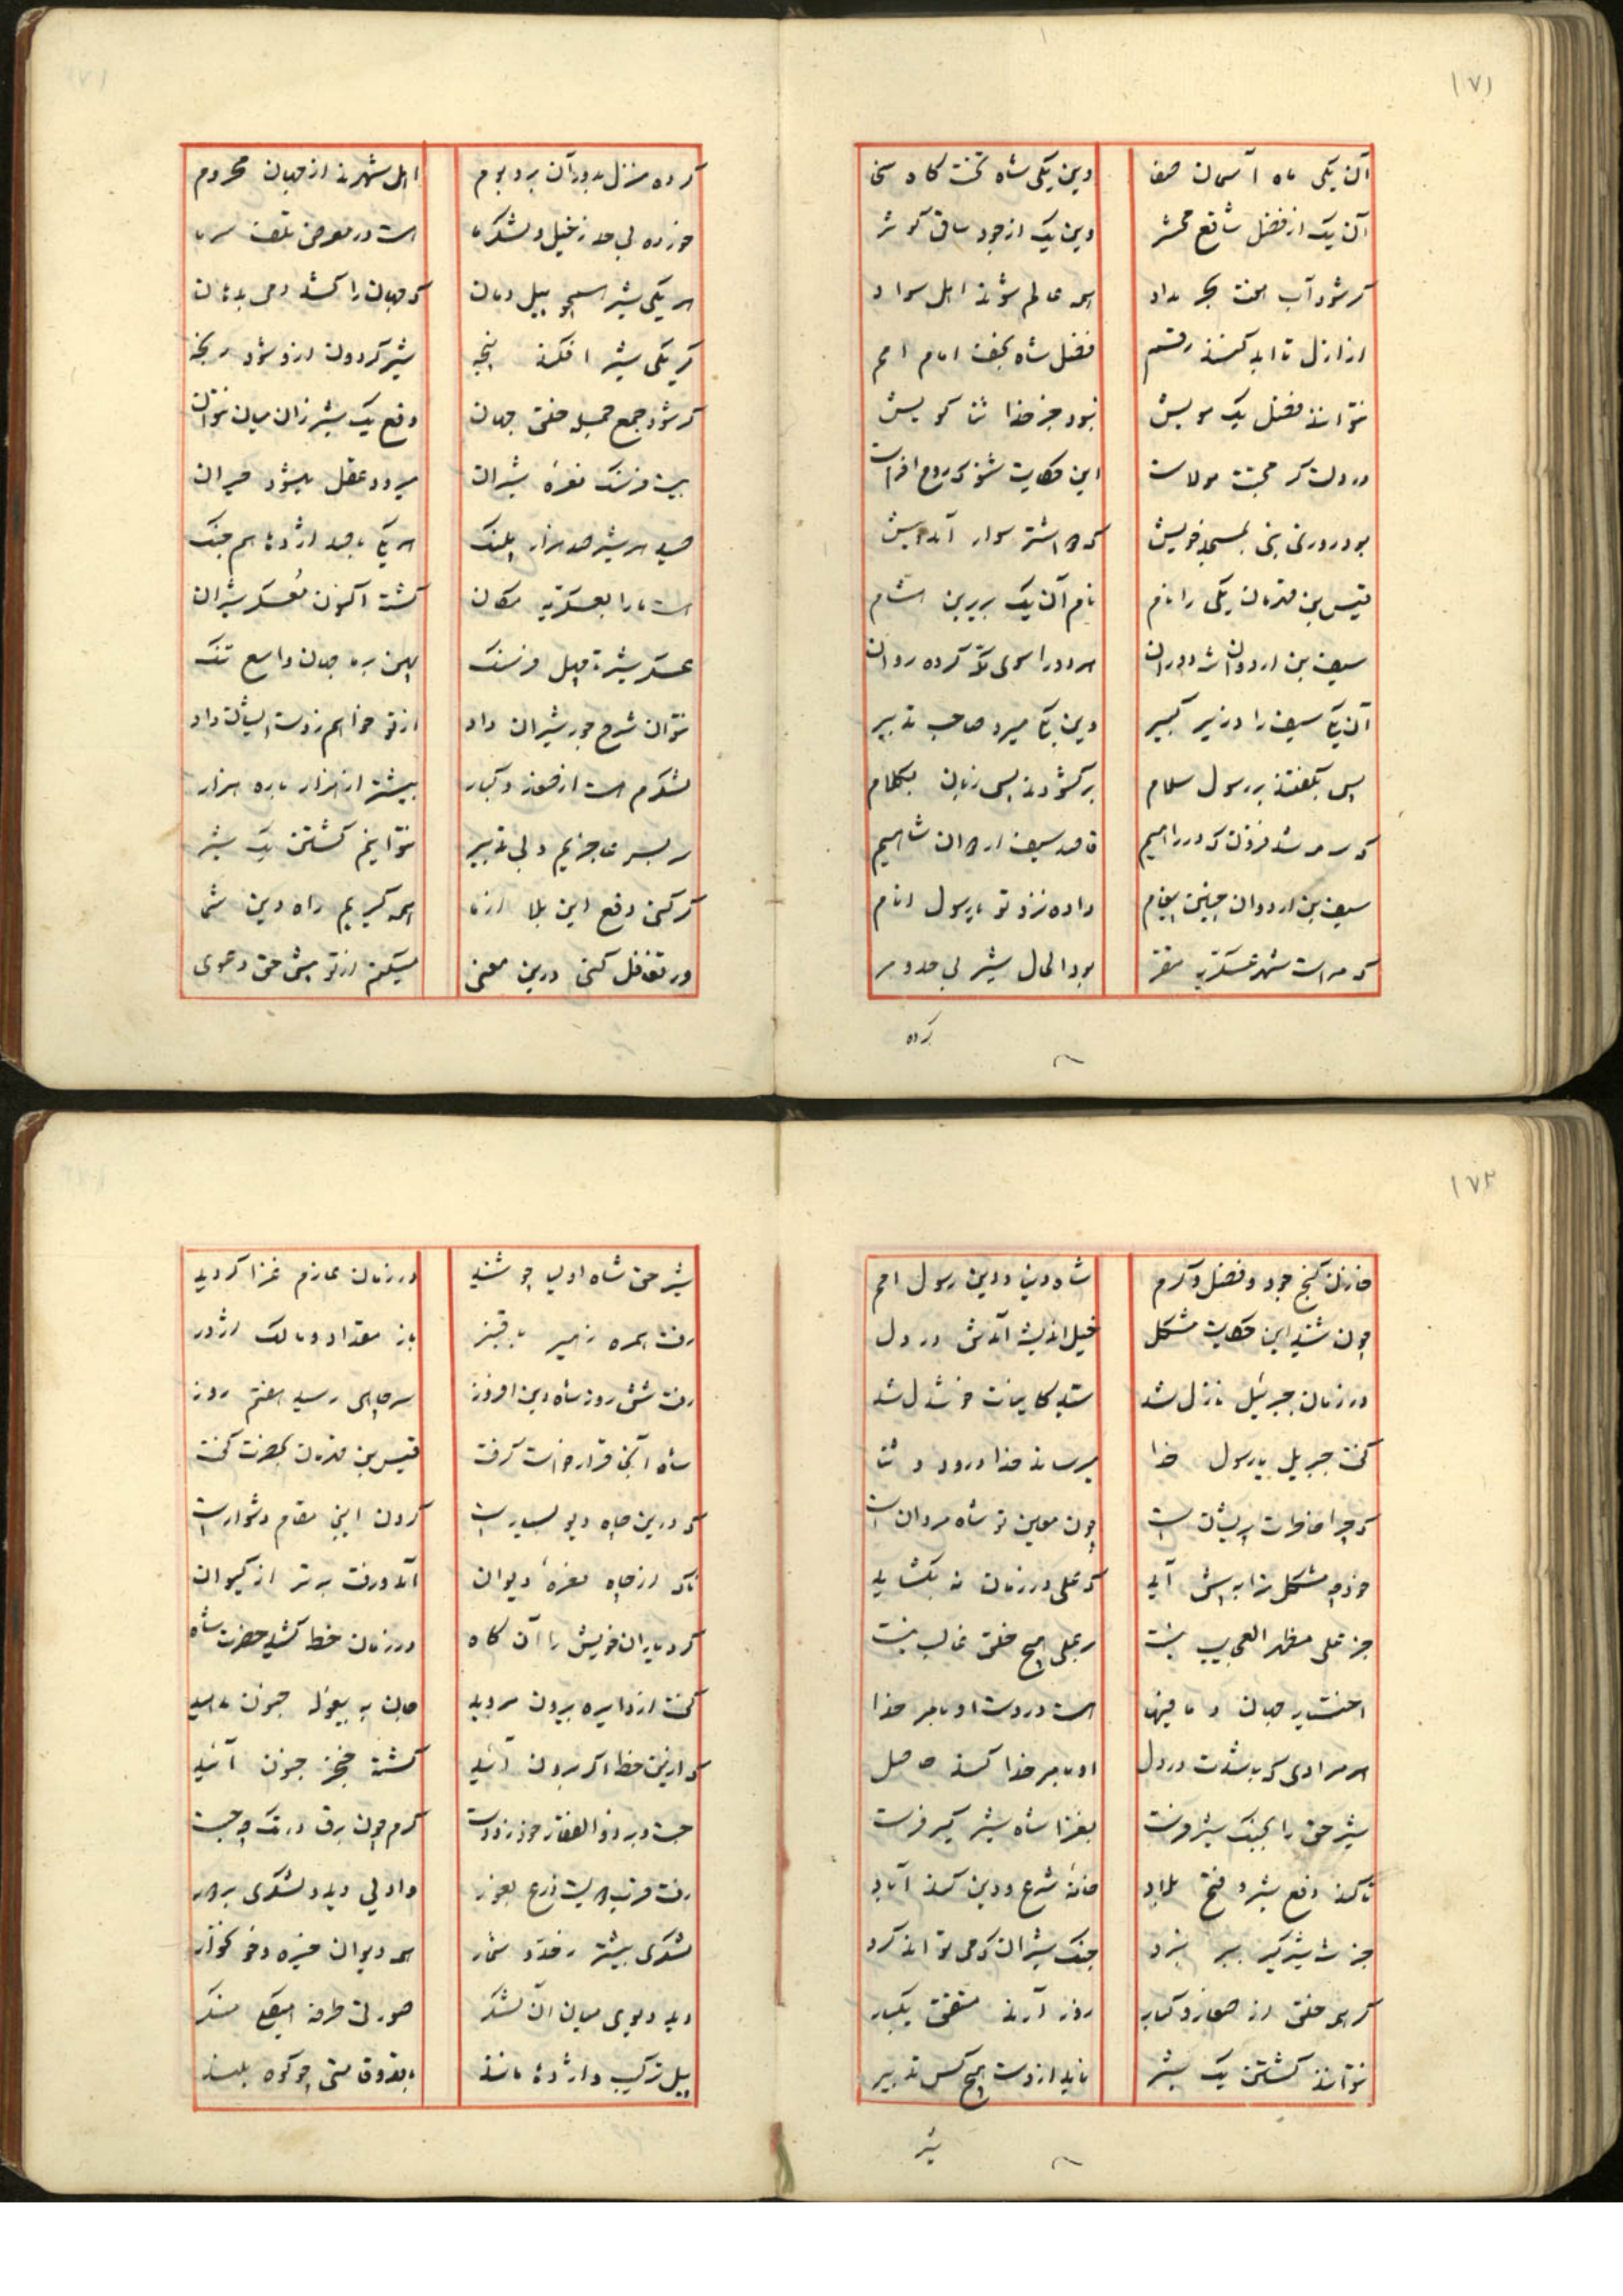 ۱۷۱
آن یکی ماه آسمان صفا وین یکی شاه تخت کاه سخا
آن یک از فضل شافع محشر وین یک از جود ساقی کوثر
کر شود آب هفت بحر مداد همه عالم شوند اهل سواد
از ازل تا ابد کنند رقم فضل شاه نجف امام امم
نتوانند فضل یک مویش نبود جز خدا ثنا کویش
در دلت کر محبت مولاست این حکایت شنو که روح افزاست
بود روزی نبی بمسجد خویش که اشتر سوار آمد پیش
قیس بن قهرمان یکی را نام نام آن یک بریر بن
سیف بن اردوان شه دوران هر دو را سوی مکه کرده روان
آن یکی سیف را وزیر کبیر وین یکی میر و صاحب تدبیر
پس بگفتند بر رسول سلام برکشودند پس زبان بکلام
که فزون که در راهیم قاصد سیف اردوان شاهیم
سیف بن اردوان چنین پیغام داده نزد تو یا رسول انام
که مراست شهر عسکریه مقر بود الحال شیر بی حد و مر
کرده
کرده منزل بدور آن بر و بوم اهل شهرند از جهان محروم
خورده بی حد ز خیل و لشکر ما است در معرض تلف سر ما
هر یکی شیر همچو پیل دمان که جهان را کشد دمی بدهان
کر یکی شیر افکند پنجه شیر کردون ازو شود رنجه
کر شود جمع جمله خلق جهان دفع یک شیر زان میان نتوان
بیست فرسنک نعرهٔ شیران میرود عقل میشود حیران
صید هر شیر صد هزار پلنک هر یکی با صد اژدها هم جنک
است ما را بعسکریه مکان کشت اکنون معسکر شیران
عسکر شیر تا چهل فرسنک پهن بر ما جهان واسع تنک
نتوان شرح جور شیران داد از تو خواهیم زدست ایشان داد
لشکرم هست از صغار و کبار بیشتر از هزار باره هزار
سر بسر عاجزیم و بی تدبیر نتوانیم کشتن یک شیر
کر کنی دفع این بلا از ما همه کیریم راه دین شما
ور تغافل کنی درین معنی میکنیم از تو پیش حق دعوی
۱۷۲
خازن کنج جود و فضل و کرم شاه دنیا و دین رسول امم
چون شنید این حکایت مشکل خیل اندیشه آمدش در دل
در زمان جبرئیل نازل شد سید کاینات خوشدل شد
کفت جبریل یا رسول خدا میرساند خدا درود و ثنا
که چرا خاطرت پریشان است چون معین تو شاه مردان است
خود چه مشکل ترا به پیش آید که علی در زمان نه بکشاید
جز علی مظهر العجایب نیست بر علی هیچ خلق غالب نیست
اختیار جهان و ما فیها است در دست او بامر خدا
هر مرادی که باشدت در دل او بامر خدا کند حاصل
شیر حق را بجنک شیر فرست بغزا شاه شیر کیر فرست
تا کند دفع شیر و فتح بلاد خانهٔ شرع و دین کند آباد
جز شه شیر کیر ببر نبرد جنک شیران که می تواند کرد
کر همه خلق از صغار و کبار روز آرند متفق یکبار
نتوانند کشتن یک شیر ناید از دست هیچ کس تدبیر
شیر
شیر حق شاه اولیا چو شنید در زمان عازم غزا کردید
رفت همره زمیر با قنبر باز مقداد و مالک اژدر
رفت شش روز شاه دین افروز سر چاهی رسید هفتم روز
شاه آنجا قرار خواست کرفت قیس بن قهرمان بحضرت کفت
که درین چاه دیو بسیار است کردن اینجا مقام دشوار است
ناکه از چاه نعرهٔ دیوان آمد و رفت برتر از کیوان
کرد یاران خویش را آن کاه در زمان خط کشید حضرت شاه
کفت از دایره برون مروید جان به بیغوله جنون مدهید
که ازین خط اکر برون آئید کشته خنجر جنون آئید
جست و برد ذوالفقار خود زدست کرم چون برق در تک چه جست
رفت قرب دویست ذرع بغور وادیی دید و لشکری بر دور
لشکری بیشتر ز حد و شمار همه دیوان خیره و خونخوار
دید دیوی میان آن لشکر صورتی طرفه هیکلی منکر
پیل ترکیب و اژدها مانند قد و قامتی چو کوه بلند